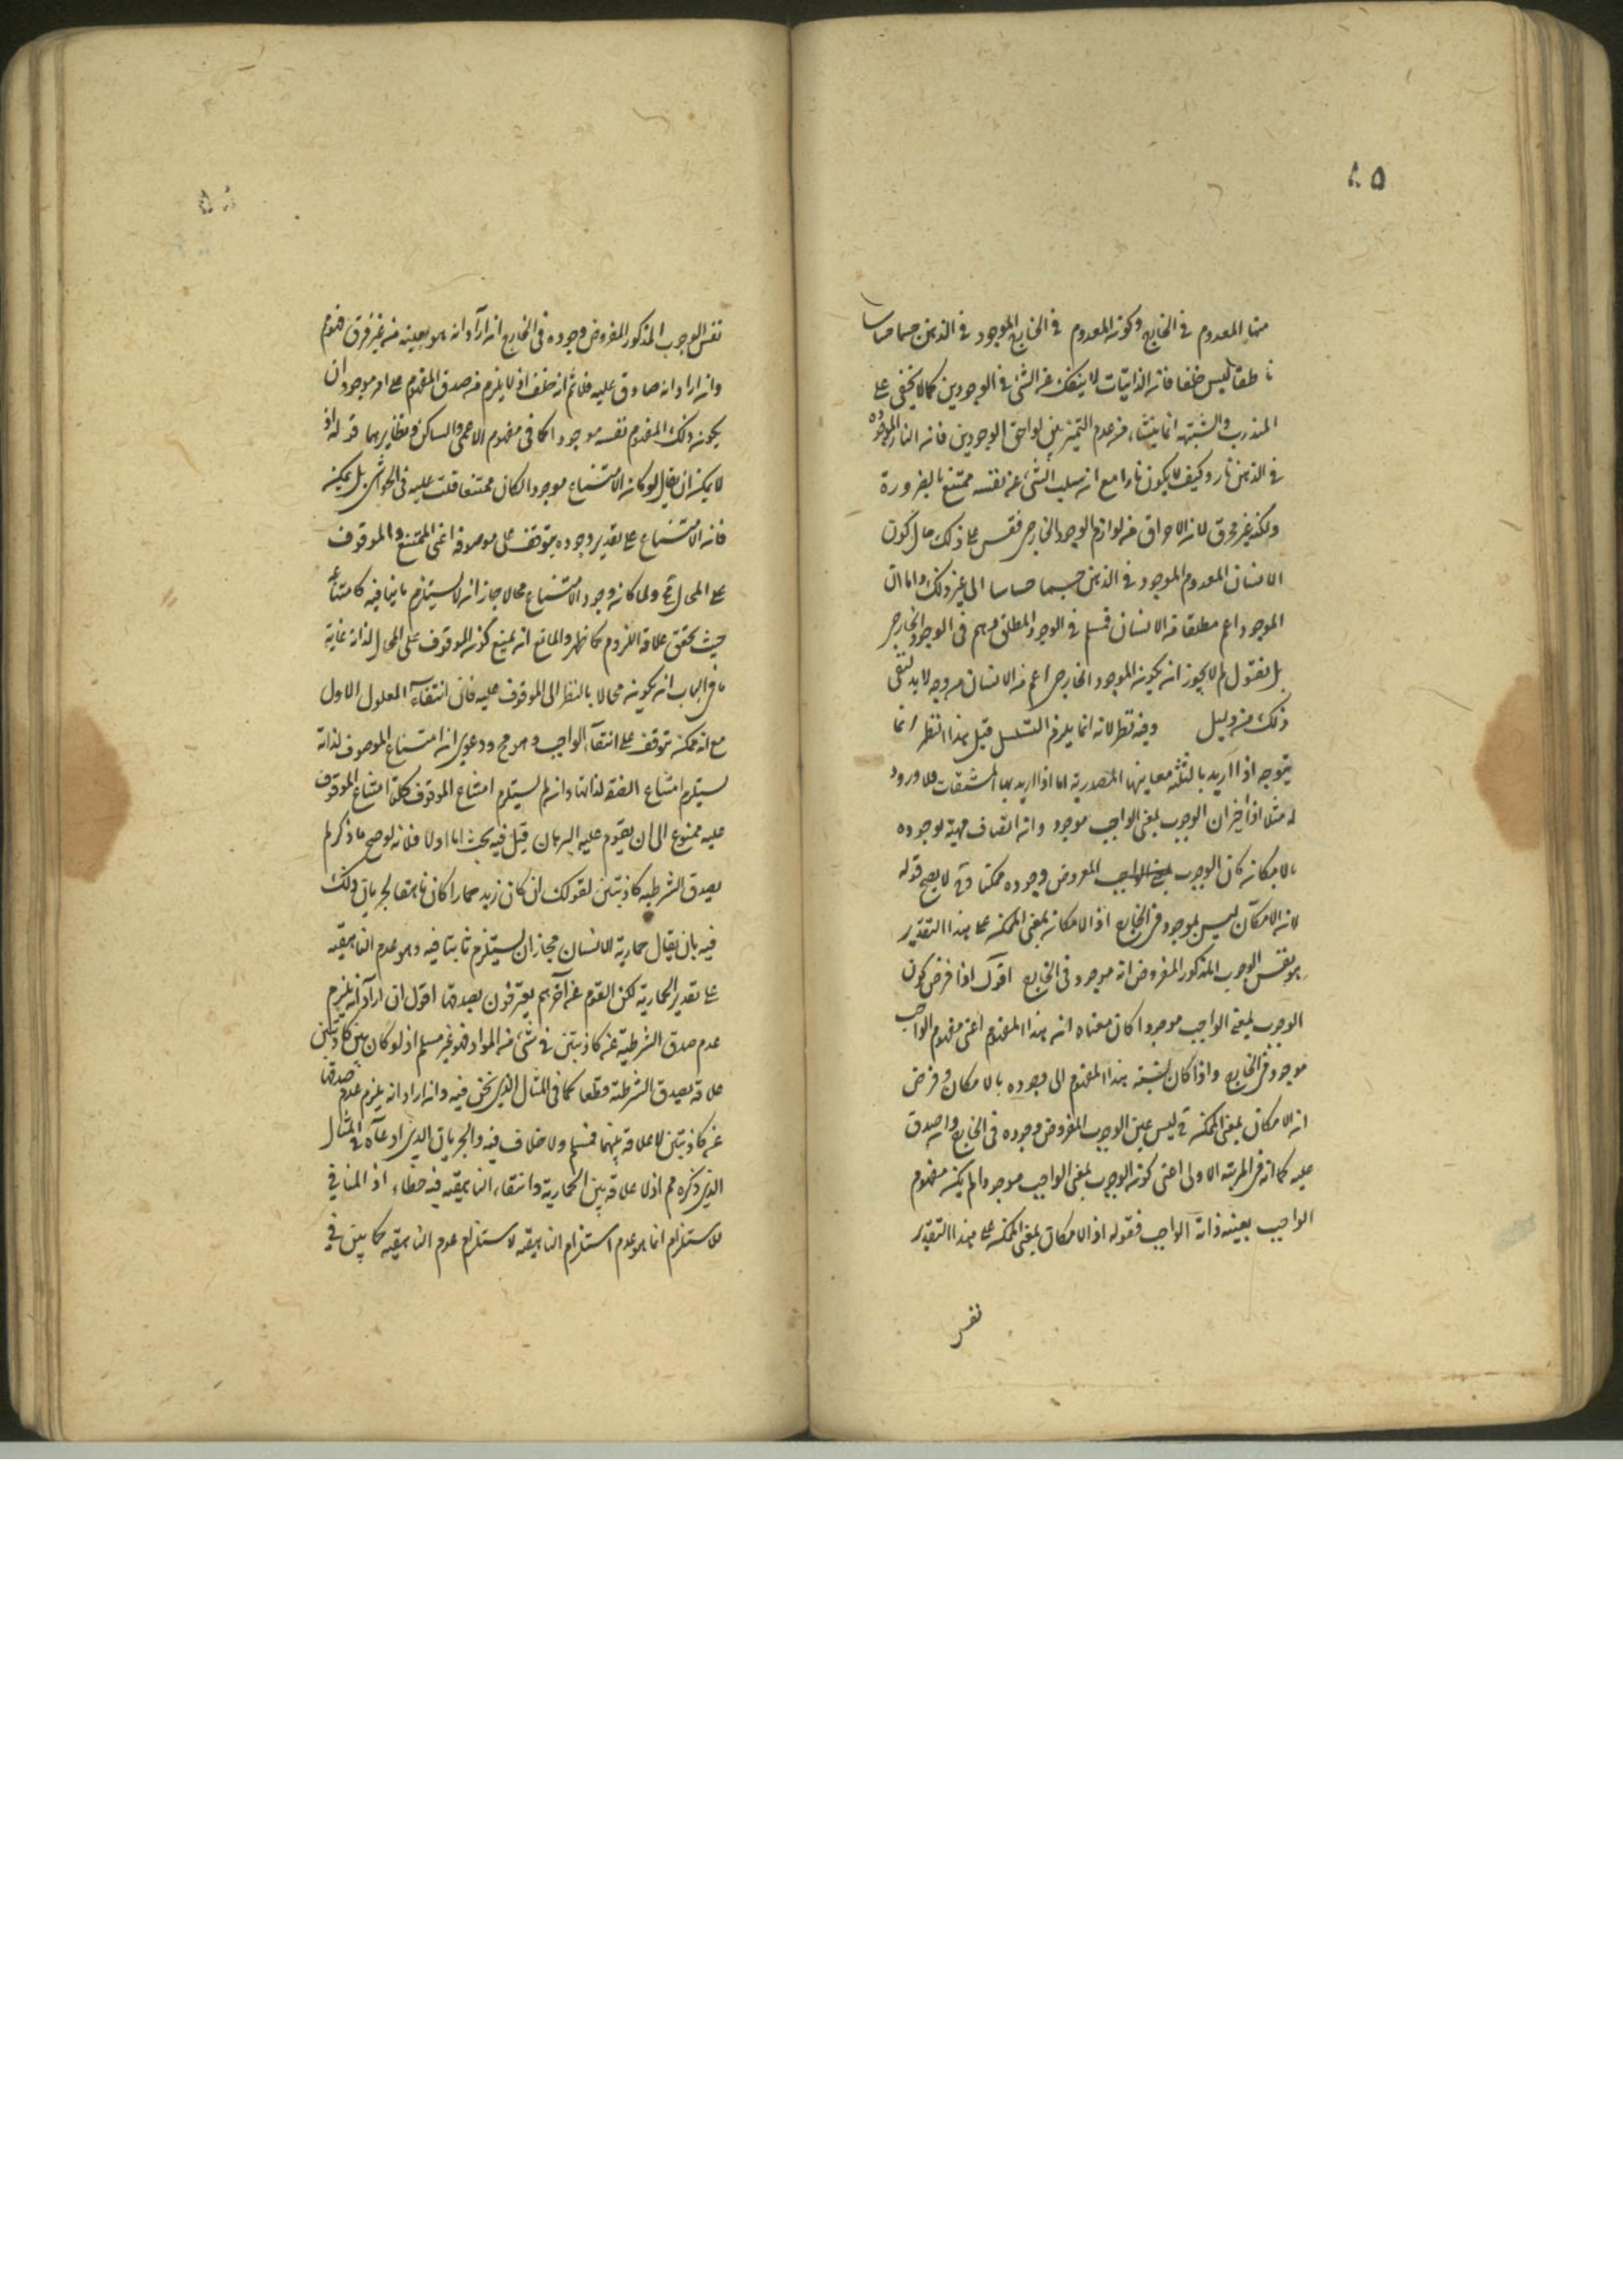 ٨٥
منها المعدوم في الخارج وكونه المعدوم في الخارج الموجود في الذهن جسما حساسا
ناطقا ليس خلفا فانه الذاتيات لا ينفك عن الشئ في الوجودين كما لا يخفى على
المتدرب والشبهة انما ينشاء من عدم التميز بين لواحق الوجودين فانه النار الموجودة
في الذهن نار وكيف لا يكون نارا مع انه سلب الشئ عن نفسه ممتنع بالضرورة
ولكنه غير محرق لانه الاحراق من لوازم الوجود الخارجي فقس على ذلك حال كون
الانسان المعدوم الموجود في الذهن جسما حساسا الى غير ذلك واما ان
الموجود اعم مطلقا من الانسان فمسلم في الوجود المطلق وهم في الوجود الخارجي
بل نقول لم لا يجوز انه يكونه الموجود الخارجي اعم من الانسان من وجه لا بد لنفى
ذلك من دليل وفيه نظر لانه انما يلزم التسلسل قيل هذا النظر انما
يتوجه اذا اريد بالثلثة معاينها المصدرية اما اذا اريد بها المشتقات فلا ورود
له مثلا اذا اخبر ان الوجوب بمعنى الواجب موجود وانه اتصاف مهية بوجوده
بالامكانه كان الوجوب بمعنى الواجب المفروض وجوده ممكنا وح لا يصح قوله
لانه الامكان ليس بموجود في الخارج اذ الامكانه بمعنى الممكنه على هذا التقدير
هو نفس الوجوب المذكور المفروض انه موجود في الخارج اقول اذا فرض كون
الوجوب بمعنى الواجب موجودا كان معناه انه هذا المفهوم اعنى مفهوم الواجب
موجود في الخارج واذا كان نسبته هذا المفهوم الى وجوده بالامكان وفرض
انه الامكان بمعنى الممكنه ح ليس عين الوجوب المفروض وجوده في الخارج وانه صدق
عليه كما انه في المرتبة الاولى اعنى كونه الوجوب بمعنى الواجب موجودا لم يكنه مفهوم
الواجب بعينه ذاته الواجب فقوله اذ الامكان بمعنى الممكنه على هذا التقدير
نفس
نفس الوجوب المذكور المفروض وجوده في الخارج انه اراد انه هو بعينه من غير فرق فهوم
وانه اراد انه صادق عليه فلا ثم انه خلف اذ لا يلزم من صدق المفهوم على امر موجود ان
يكونه ذلك المفهوم نفسه موجودا كما في مفهوم الاعمى والساكن ونظايرهما قوله اذ
لا يمكنه ان يقال لو كانه الامتناع موجودا لكان ممتنعا قلت عليه في الحواشى بل يمكنه
فانه الامتناع على تقدير وجوده يتوقف على موصوفه اعنى الممتنع والموقوف
على المحال مح ولما كانه وجود الامتناع محالا جاز انه لا يستلزم ما ينافيه كامتناعه
حيث تحقق علاقة اللزوم كما ظهر والمانع انه يمنع كونه الموقوف على المحال لذاته غاية
ما في الباب انه يكونه محالا بالنظر الى الموقوف عليه فانى انتفاء المعلول الاول
مع انه ممكنه يتوقف على انتفاء الواجب وهو مح ودعوى انه امتناع الموصوف لذاته
يستلزم امتناع الصفة لذاتها وانه لم يستلزم امتناع الموقوف كلية امتناع الموقوف
عليه ممنوع الى ان يقوم عليه البرهان قيل فيه بحث اما اولا فلانه لو صح ما ذكر لم
يصدق الشرطيه كاذبتين لقولك ان كان زيد حمارا كان ناهقا لجريان ذلك
فيه بان يقال حمارية الانسان مح جاز ان يستلزم ما ينافيه وهو عدم الناهقيه
على تقدير الحمارية لكن القوم عن آخرهم يعترفون بصدقها اقول ان اراد انه يلزم
عدم صدق الشرطية عنه كاذبتين في شئ من المواد فهو غير مسلم اذ لو كان بين كاذبتين
علاقة يصدق الشرطية قطعا كما في المثال الذي نحن فيه وانه اراد انه يلزم عدم صدقها
عنه كاذبتين لا علاقة بينهما فمسلم ولا خلاف فيه والجريان الذي ادعاه في المثال
الذي ذكره مم اذ لا علاقة بين الحمارية وانتفاء الناهقيه فيه خطاء اذ المنافي
للاستلزام انما هو عدم استلزام الناهقيه لا استلزام عدم الناهقيه كما بين في